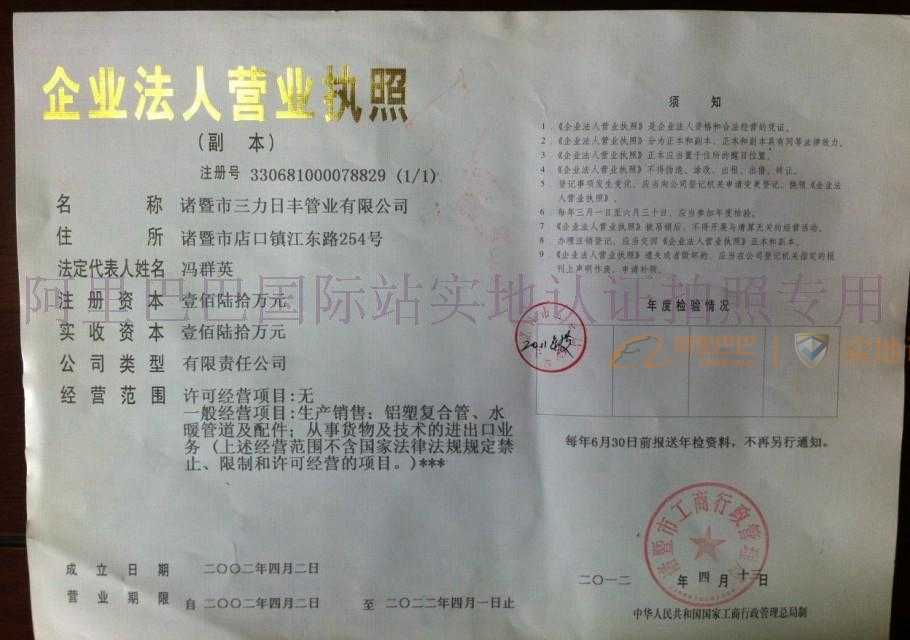 企业法人营业执照
（副 本）
注册号 330681000078829 (1/1)
名 称 诸暨市三力日丰管业有限公司
住 所 诸暨市店口镇江东路254号
法定代表人姓名 冯群英
注册资本 壹佰陆拾万元
实收资本 壹佰陆拾万元
公司类型 有限责任公司
经营范围 许可经营项目:无
一般经营项目:生产销售：铝塑复合管、水
暖管道及配件；从事货物及技术的进出口业
务（上述经营范围不含国家法律法规规定禁
止、限制和许可经营的项目。)***
成立日期 二〇〇二年四月二日
营业期限 自二〇〇二年四月二日 至二〇二二年四月一日止
须 知
1．《企业法人营业执照》是企业法人资格和合法经营的凭证。
2．《企业法人营业执照》分为正本和副本，正本和副本具有同等法律效力。
3．《企业法人营业执照》正本应当置于住所的醒目位置。
4．《企业法人营业执照》不得伪造、涂改、出租、出借、转让。
5．登记事项发生变化，应当向公司登记机关申请变更登记，换领《企业法
人营业执照》。
6．每年三月一日至六月三十日，应当参加年度检验。
7．《企业法人营业执照》被吊销后，不得开展与清算无关的经营活动。
8．办理注销登记，应当交回《企业法人营业执照》正本和副本。
9．《企业法人营业执照》遗失或者毁坏的，应当在公司登记机关指定的报
刊上声明作废，申请补领。
年度检验情况
每年6月30日前报送年检资料，不再另行通知。
诸暨市工商行政管理局
二〇一二 年 四 月 十三 日
中华人民共和国国家工商行政管理总局制
阿里巴巴国际站实地认证拍照专用
阿里巴巴 实地